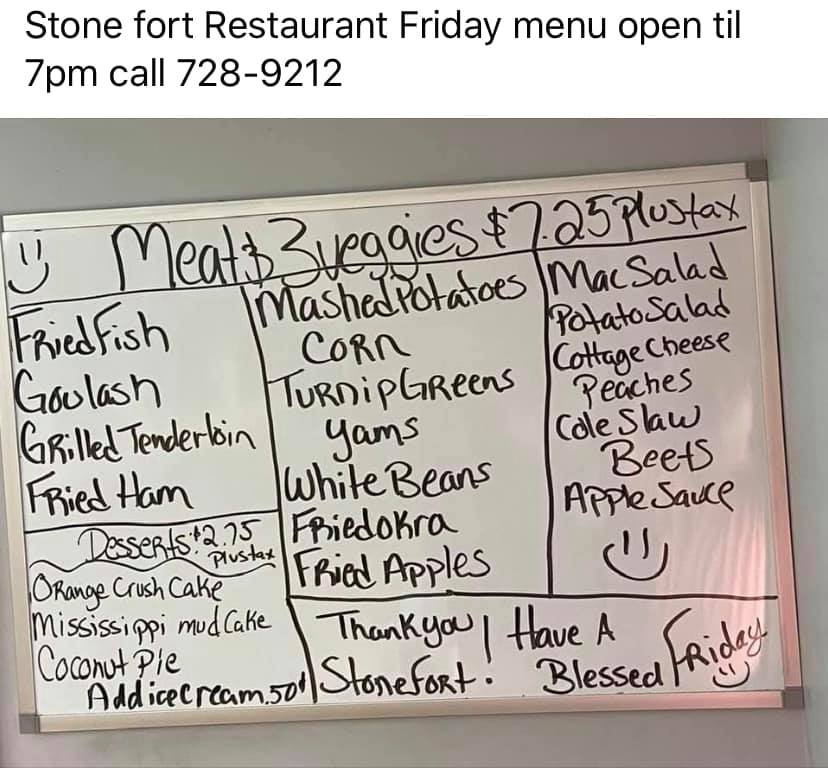 Stone fort Restaurant Friday menu open til
7pm call 728-9212
Meat$3veggies $7.25 Plus tax
Fried Fish
Goulash
Grilled Tenderloin
Fried Ham
Desserts $2.75
Plus tax
Orange Crush Cake
Mississippi mud Cake
Coconut Pie
Add ice cream .50¢
Mashed Potatoes
Corn
Turnip Greens
yams
White Beans
Fried okra
Fried Apples
Mac Salad
Potato Salad
Cottage Cheese
Peaches
Cole Slaw
Beets
Apple Sauce
Thank you!
Stonefort!
Have A
Blessed Friday